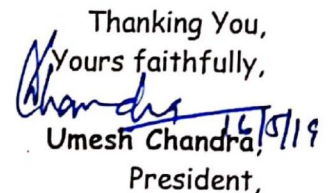 Thanking You,
Yours faithfully,
Chandra
16/5/19
Umesh Chandra,
President,